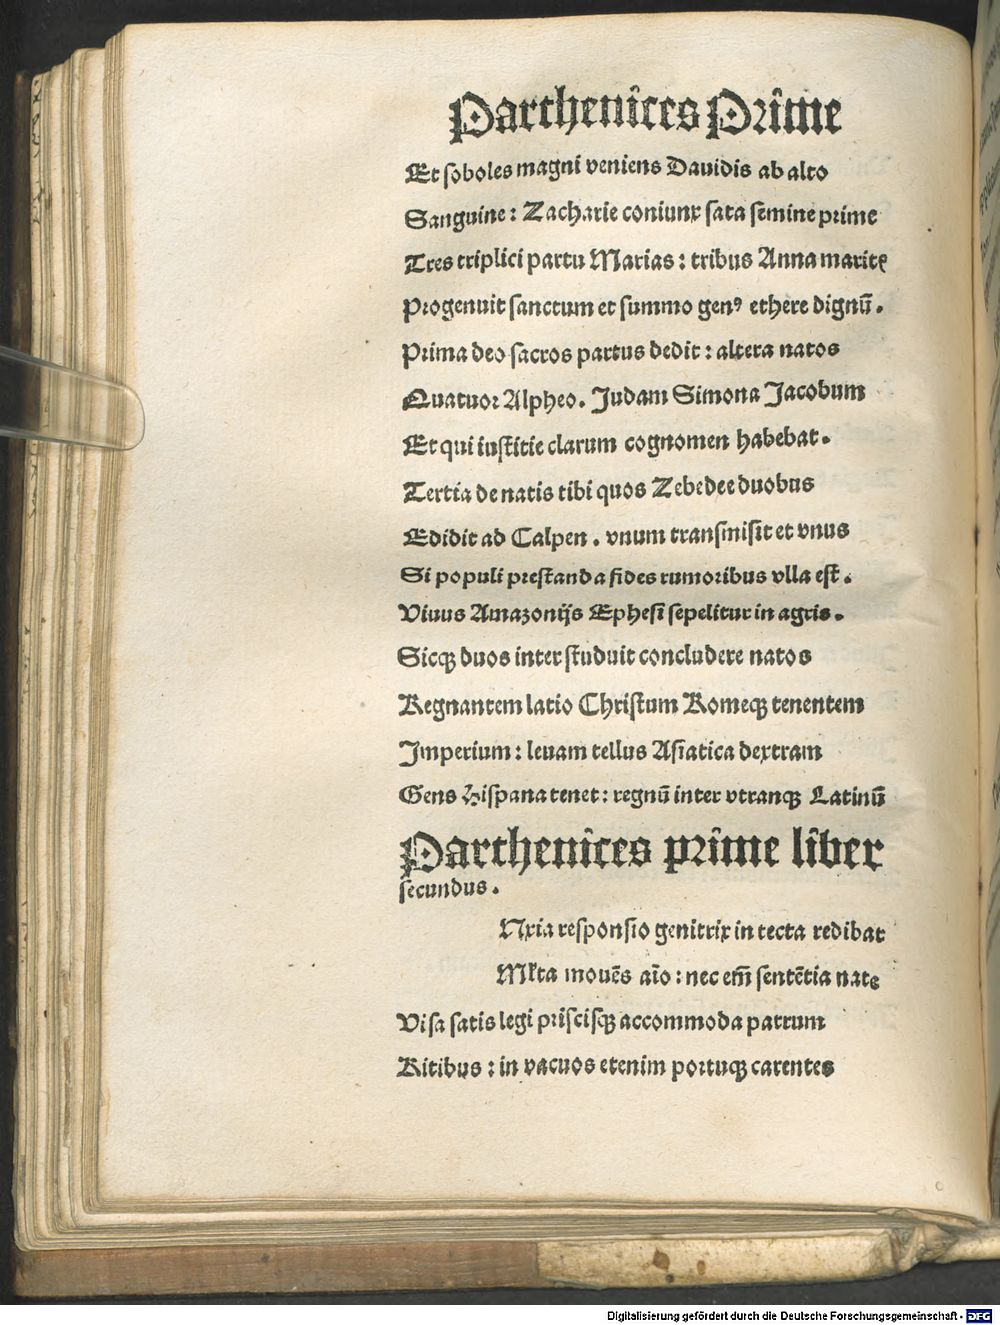 Parthenices Prime
Et soboles magni veniens Dauidis ab alto
Sanguine: Zacharie coniunx sata semine prime
Tres triplici partu Marias: tribus Anna maritꝭ
Progenuit sanctum et summo genꝰ ethere dignū.
Prima deo sacros partus dedit: altera natos
Quatuor Alpheo. Judam Simona Jacobum
Et qui iustitie clarum cognomen habebat.
Tertia de natis tibi quos Zebedee duobus
Edidit ad Calpen. vnum transmisit et vnus
Si populi prestanda fides rumoribus vlla est.
Viuus Amazonijs Ephesi sepelitur in agris.
Sicqꝫ duos inter studuit concludere natos
Regnantem latio Christum Romeqꝫ tenentem
Imperium: leuam tellus Asiatica dextram
Gens Hispana tenet: regnū inter vtranqꝫ Latinū
Parthenices prime liber
secundus.
Nxia responsio genitrix in tecta redibat
Ml̃ta mouēs aīo: nec em̄ sentētia nate
Visa satis legi priscisqꝫ accommoda patrum
Ritibus: in vacuos etenim portuqꝫ carentes
Digitalisierung gefördert durch die Deutsche Forschungsgemeinschaft - DFG